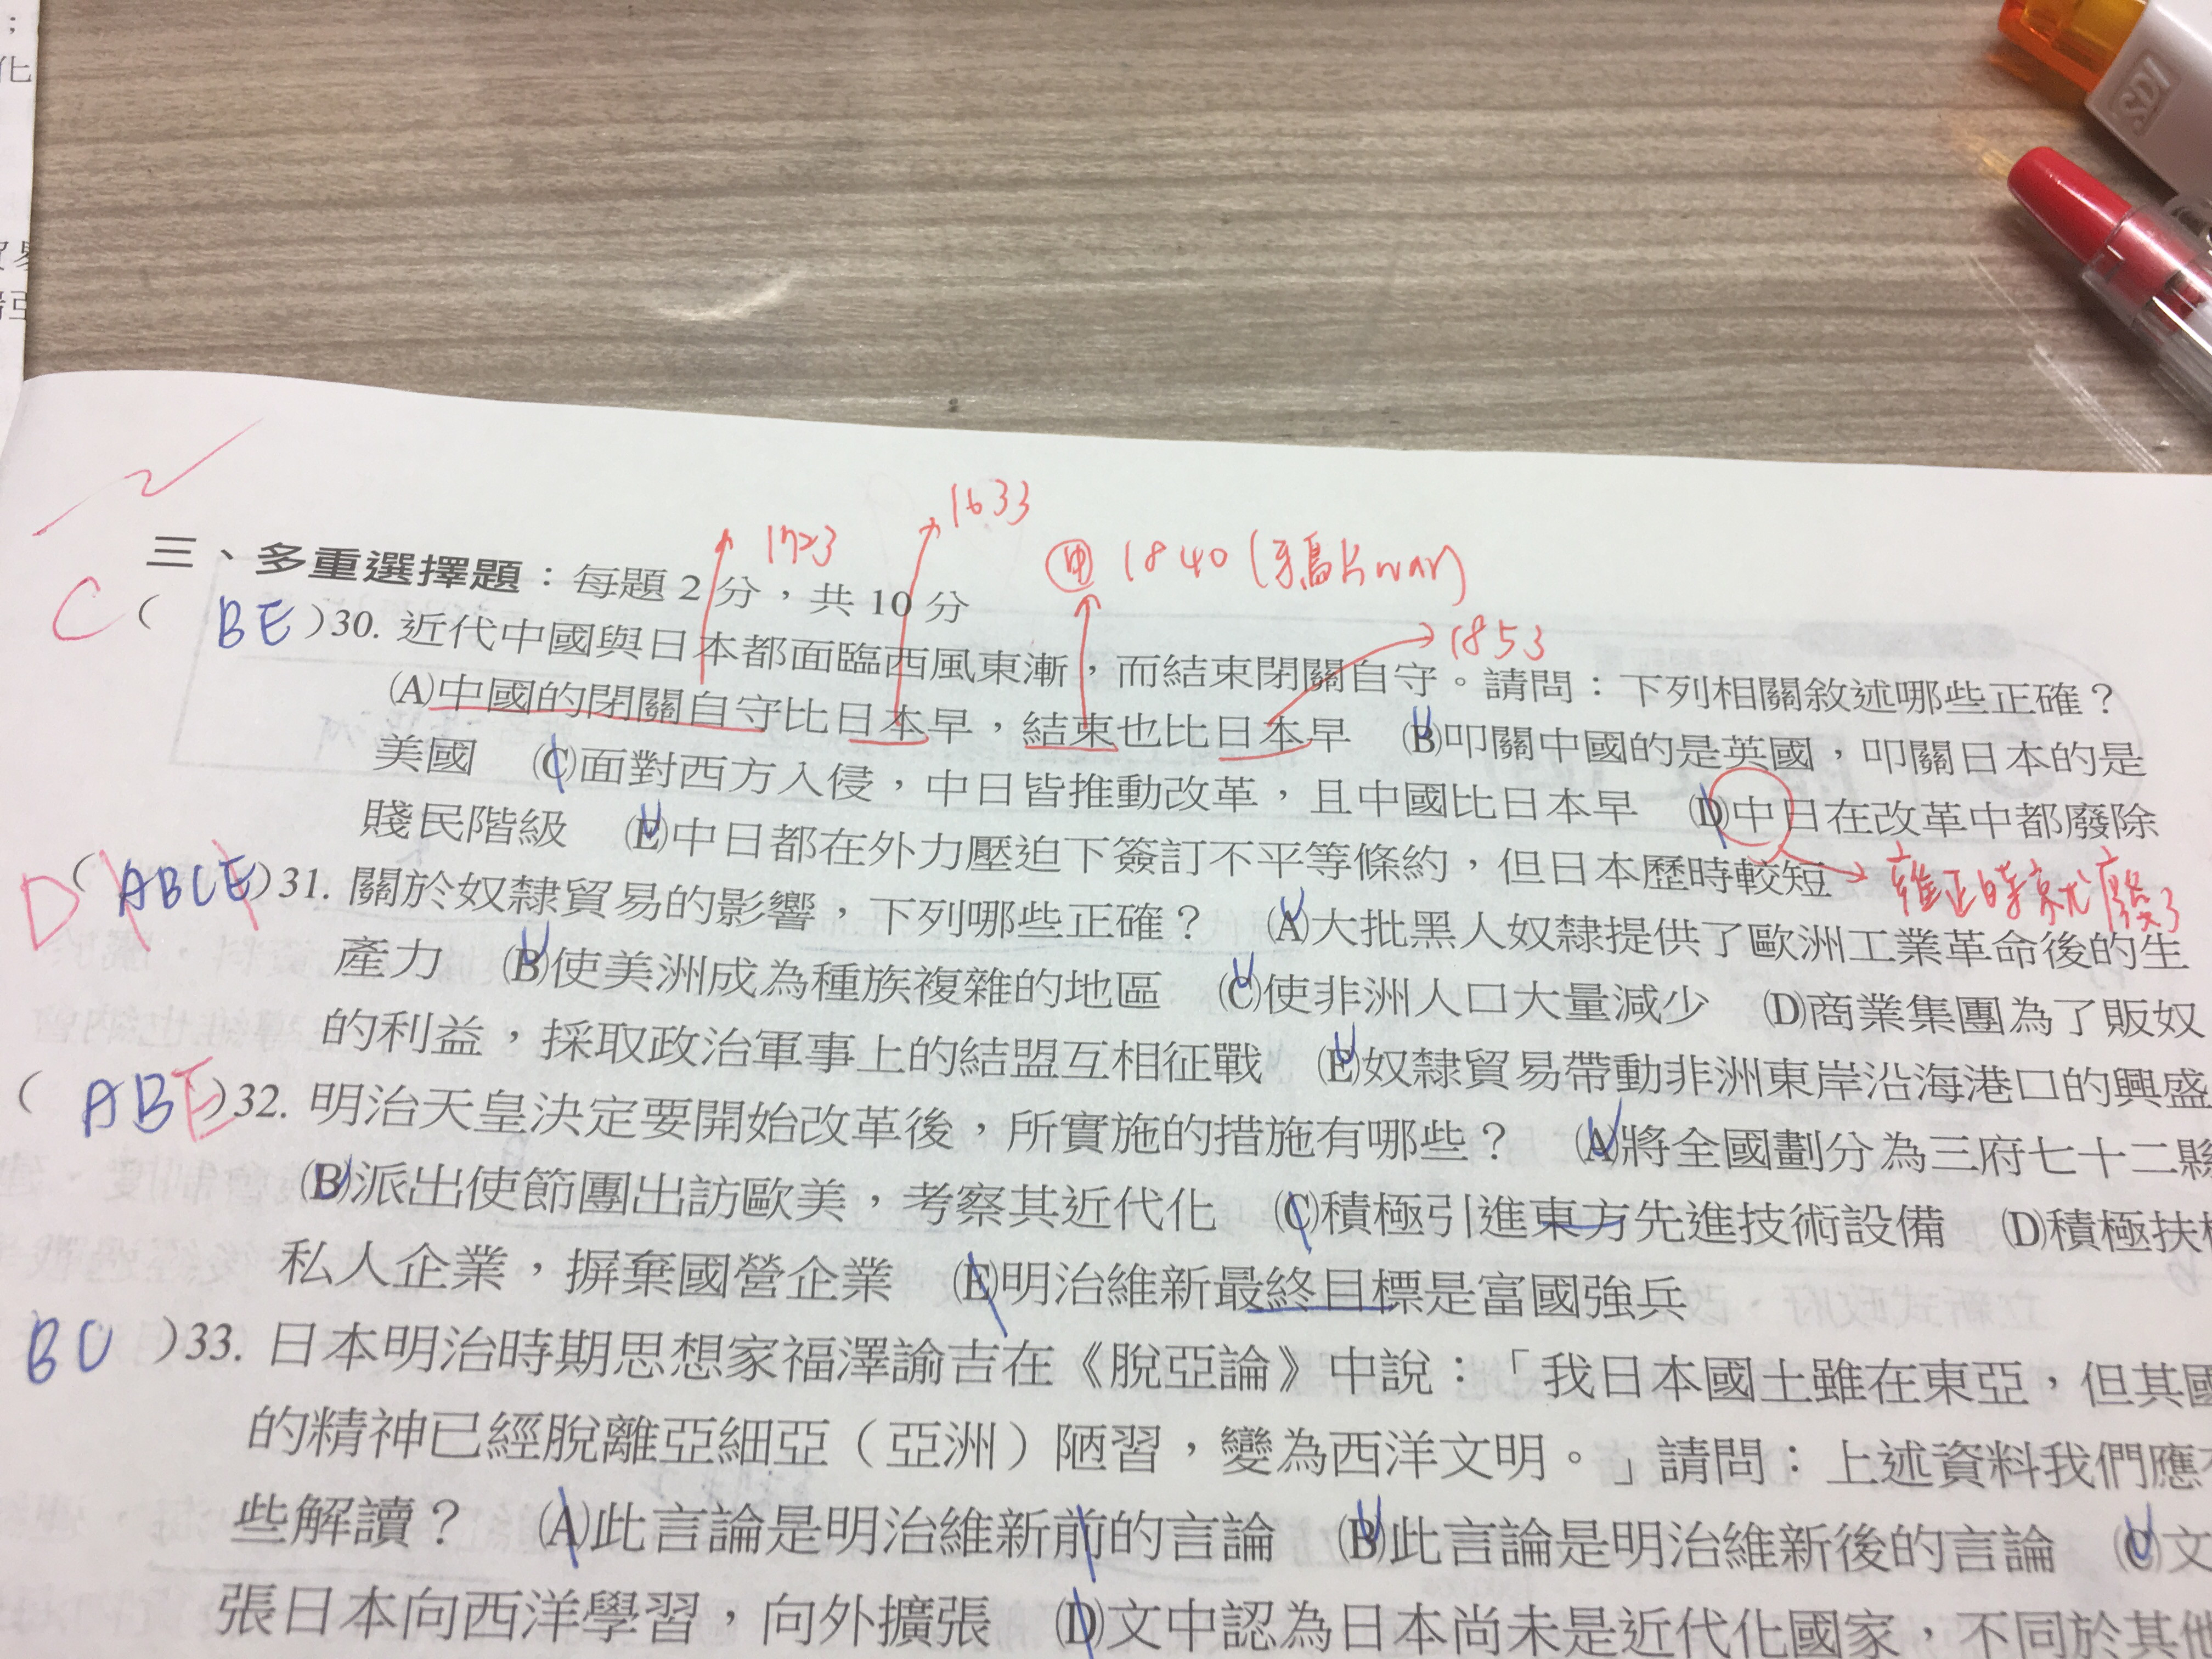 ；
化
SDI
1633
1723
中 1840 (鴉片war)
三、多重選擇題：每題 2 分，共 10 分
1853
C ( BE )30. 近代中國與日本都面臨西風東漸，而結束閉關自守。請問：下列相關敘述哪些正確？
(A)中國的閉關自守比日本早，結束也比日本早 (B)叩關中國的是英國，叩關日本的是
美國 (C)面對西方入侵，中日皆推動改革，且中國比日本早 (D)中日在改革中都廢除
賤民階級 (E)中日都在外力壓迫下簽訂不平等條約，但日本歷時較短
雍正時就廢了
D ( ABCE )31. 關於奴隸貿易的影響，下列哪些正確？ (A)大批黑人奴隸提供了歐洲工業革命後的生
產力 (B)使美洲成為種族複雜的地區 (C)使非洲人口大量減少 (D)商業集團為了販奴
的利益，採取政治軍事上的結盟互相征戰 (E)奴隸貿易帶動非洲東岸沿海港口的興盛
( ABE )32. 明治天皇決定要開始改革後，所實施的措施有哪些？ (A)將全國劃分為三府七十二縣
(B)派出使節團出訪歐美，考察其近代化 (C)積極引進東方先進技術設備 (D)積極扶植
私人企業，摒棄國營企業 (E)明治維新最終目標是富國強兵
BC )33. 日本明治時期思想家福澤諭吉在《脫亞論》中說：「我日本國土雖在東亞，但其國
的精神已經脫離亞細亞（亞洲）陋習，變為西洋文明。」請問：上述資料我們應
些解讀？ (A)此言論是明治維新前的言論 (B)此言論是明治維新後的言論 (C)文
張日本向西洋學習，向外擴張 (D)文中認為日本尚未是近代化國家，不同於其他